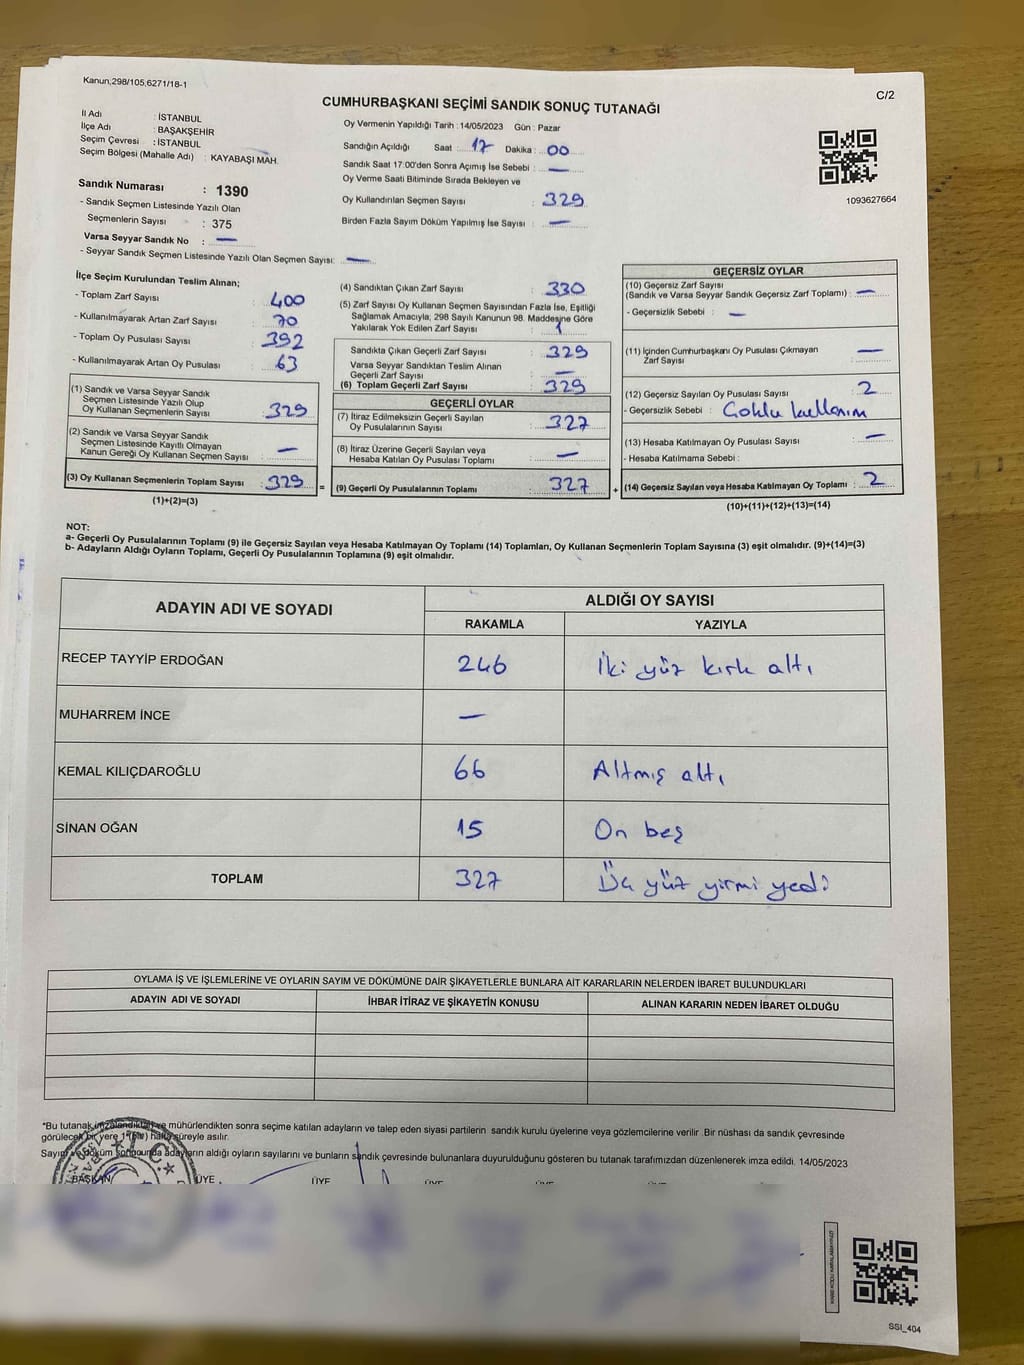 Kanun;298/105;6271/18-1
C/2
CUMHURBAŞKANI SEÇİMİ SANDIK SONUÇ TUTANAĞI
İl Adı : İSTANBUL
İlçe Adı : BAŞAKŞEHİR
Seçim Çevresi : İSTANBUL
Seçim Bölgesi (Mahalle Adı) : KAYABAŞI MAH.
Sandık Numarası : 1390
- Sandık Seçmen Listesinde Yazılı Olan
Seçmenlerin Sayısı : 375
Varsa Seyyar Sandık No : —
- Seyyar Sandık Seçmen Listesinde Yazılı Olan Seçmen Sayısı: —
Oy Vermenin Yapıldığı Tarih : 14/05/2023 Gün : Pazar
Sandığın Açıldığı Saat : 17 Dakika : 00
Sandık Saat 17:00'den Sonra Açımış İse Sebebi : —
Oy Verme Saati Bitiminde Sırada Bekleyen ve
Oy Kullandırılan Seçmen Sayısı : 329
Birden Fazla Sayım Döküm Yapılmış İse Sayısı : —
1093627664
İlçe Seçim Kurulundan Teslim Alınan;
- Toplam Zarf Sayısı : 400
- Kullanılmayarak Artan Zarf Sayısı : 70
- Toplam Oy Pusulası Sayısı : 392
- Kullanılmayarak Artan Oy Pusulası : 63
(1) Sandık ve Varsa Seyyar Sandık
Seçmen Listesinde Yazılı Olup
Oy Kullanan Seçmenlerin Sayısı : 329
(2) Sandık ve Varsa Seyyar Sandık
Seçmen Listesinde Kayıtlı Olmayan
Kanun Gereği Oy Kullanan Seçmen Sayısı : —
(3) Oy Kullanan Seçmenlerin Toplam Sayısı : 329
(1)+(2)=(3)
(4) Sandıktan Çıkan Zarf Sayısı : 330
(5) Zarf Sayısı Oy Kullanan Seçmen Sayısından Fazla İse, Eşitliği
Sağlamak Amacıyla; 298 Sayılı Kanunun 98. Maddesine Göre
Yakılarak Yok Edilen Zarf Sayısı : 1
Sandıkta Çıkan Geçerli Zarf Sayısı : 329
Varsa Seyyar Sandıktan Teslim Alınan
Geçerli Zarf Sayısı : —
(6) Toplam Geçerli Zarf Sayısı : 329
GEÇERLİ OYLAR
(7) İtiraz Edilmeksizin Geçerli Sayılan
Oy Pusulalarının Sayısı : 327
(8) İtiraz Üzerine Geçerli Sayılan veya
Hesaba Katılan Oy Pusulası Toplamı : —
= (9) Geçerli Oy Pusulalarının Toplamı : 327
GEÇERSİZ OYLAR
(10) Geçersiz Zarf Sayısı
(Sandık ve Varsa Seyyar Sandık Geçersiz Zarf Toplamı) : —
- Geçersizlik Sebebi : —
(11) İçinden Cumhurbaşkanı Oy Pusulası Çıkmayan
Zarf Sayısı : —
(12) Geçersiz Sayılan Oy Pusulası Sayısı : 2
- Geçersizlik Sebebi : Çoklu kullanım
(13) Hesaba Katılmayan Oy Pusulası Sayısı : —
- Hesaba Katılmama Sebebi :
+ (14) Geçersiz Sayılan veya Hesaba Katılmayan Oy Toplamı : 2
(10)+(11)+(12)+(13)=(14)
NOT:
a- Geçerli Oy Pusulalarının Toplamı (9) ile Geçersiz Sayılan veya Hesaba Katılmayan Oy Toplamı (14) Toplamları, Oy Kullanan Seçmenlerin Toplam Sayısına (3) eşit olmalıdır. (9)+(14)=(3)
b- Adayların Aldığı Oyların Toplamı, Geçerli Oy Pusulalarının Toplamına (9) eşit olmalıdır.
ADAYIN ADI VE SOYADI
ALDIĞI OY SAYISI
RAKAMLA YAZIYLA
RECEP TAYYİP ERDOĞAN 246 İki yüz kırk altı
MUHARREM İNCE —
KEMAL KILIÇDAROĞLU 66 Altmış altı
SİNAN OĞAN 15 On beş
TOPLAM 327 Üç yüz yirmi yedi
OYLAMA İŞ VE İŞLEMLERİNE VE OYLARIN SAYIM VE DÖKÜMÜNE DAİR ŞİKAYETLERLE BUNLARA AİT KARARLARIN NELERDEN İBARET BULUNDUKLARI
ADAYIN ADI VE SOYADI İHBAR İTİRAZ VE ŞİKAYETİN KONUSU ALINAN KARARIN NEDEN İBARET OLDUĞU
*Bu tutanak imzalandıktan ve mühürlendikten sonra seçime katılan adayların ve talep eden siyasi partilerin sandık kurulu üyelerine veya gözlemcilerine verilir .Bir nüshası da sandık çevresinde
görülecek bir yere 1 (bir) hafta süreyle asılır.
Sayım ve döküm sonucunda adayların aldığı oyların sayılarını ve bunların sandık çevresinde bulunanlara duyurulduğunu gösteren bu tutanak tarafımızdan düzenlenerek imza edildi. 14/05/2023
BAŞKAN ÜYE ÜYE ÜYE ÜYE ÜYE
SSI_404